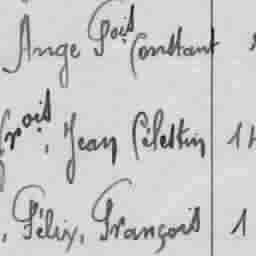 Ange Fçois Constant
çois, Jean Célestin 1
, Félix, François 1